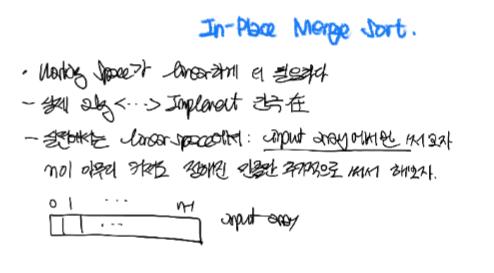 In-Place Merge Sort.
· Working space가 linear하게 더 필요하다
- 실제 alg <···> Implement 간극 在
- 실전에서는 linear space에서: input array에서만 써보자
n이 아무리 커져도 정해진 만큼만 추가적으로 써서 해보자.
0 1 ··· n-1
··· input array